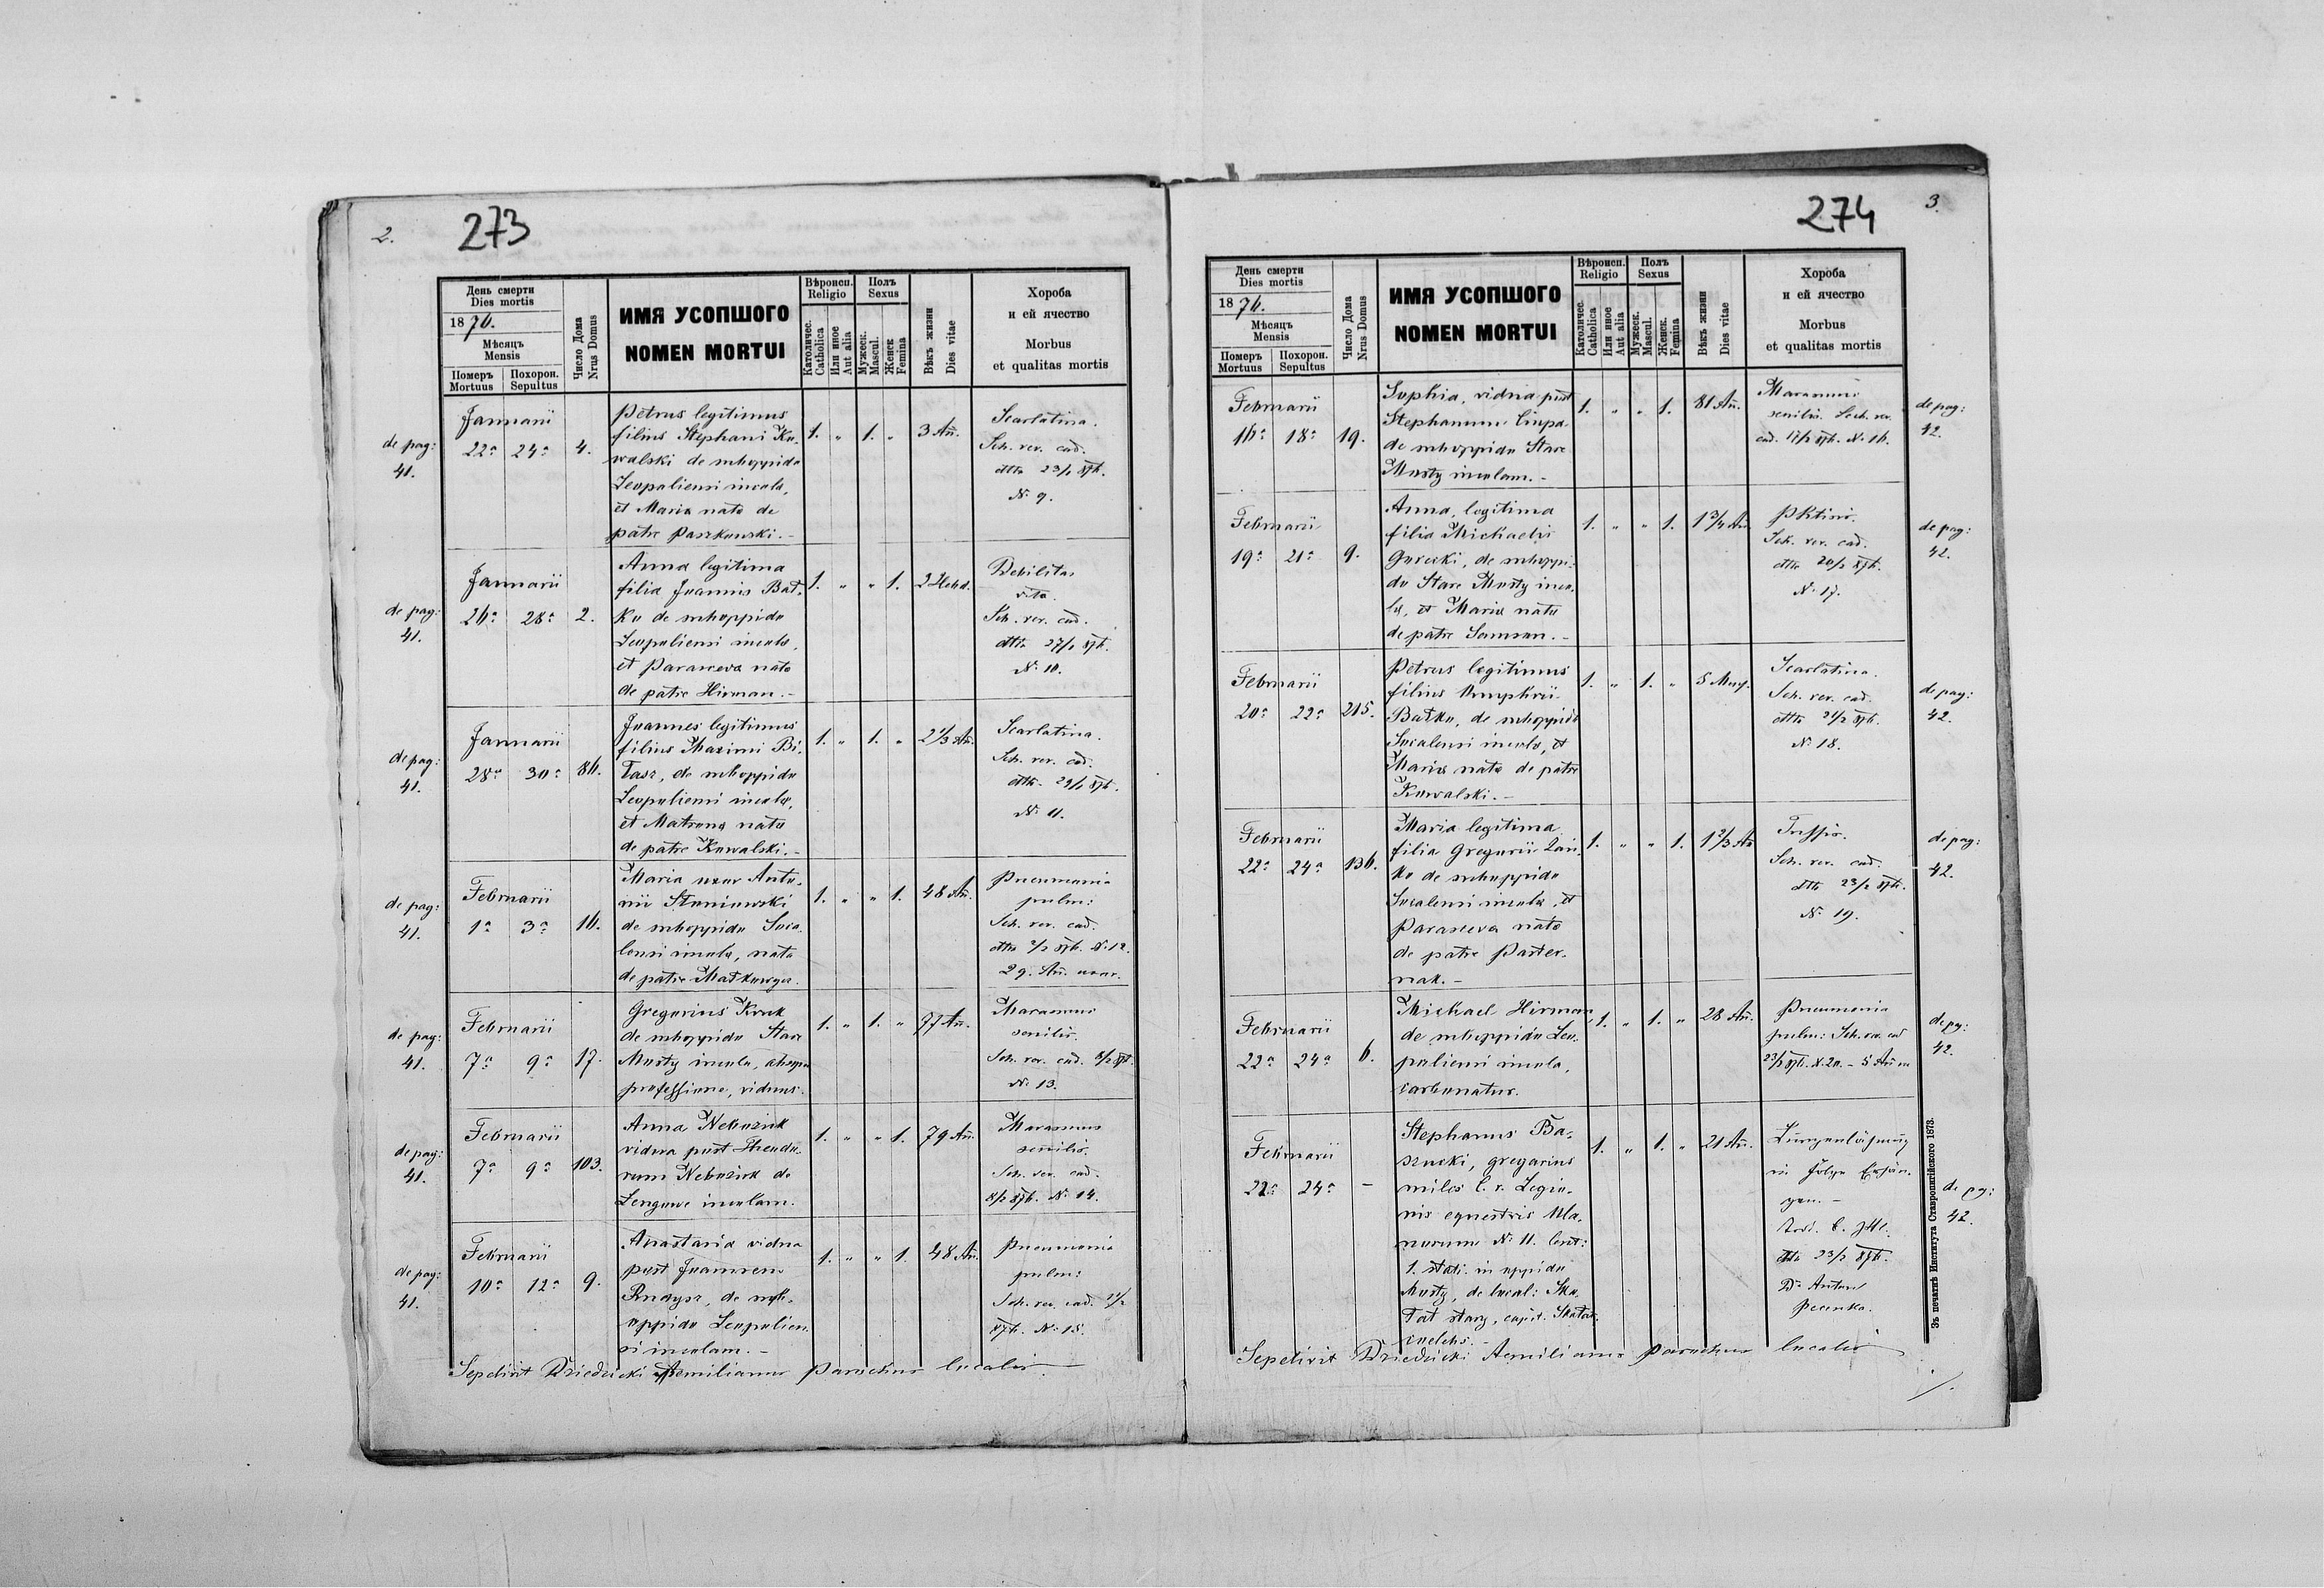 2.
273
День смерти
Dies mortis
1876.
Мѣсяцъ
Mensis
Померъ
Mortuus
Похорон.
Sepultus
Число Дома
Nrus Domus
ИМЯ УСОПШОГО
NOMEN MORTUI
Вѣроисп.
Religio
Католичес.
Catholica
Или иное
Aut alia
Полъ
Sexus
Мужеск.
Mascul.
Женск
Femina
Вѣкъ жизни
Dies vitae
Хороба
и ей ячество
Morbus
et qualitas mortis
de pag:
41.
Januarii
22a 24a 4.
Petrus legitimus
filius Stephani Ko-
walski de suboppido
Leopoliensi incola,
et Maria nata de
patre Paszkowski.-
1. " 1. " 3 An̄.
Scarlatina.
Sch. rev. cad.
dtto 23/1 876.
No 9.
de pag:
41.
Januarii
26a 28a 2.
Anna legitima
filia Joannis Bał-
ko de suboppido
Leopoliensi incola,
et Parasceva nata
de patre Hirman.-
1. " " 1. 2 Hebd.
Debilitas
vita.
Sch. rev. cad.
dtto 27/1 876.
No 10.
de pag:
41.
Januarii
28a 30a 86.
Joannes legitimus
filius Maximi Bi-
łasz, de suboppido
Leopoliensi incola,
et Matrona nata
de patre Kowalski.-
1. " 1. " 2 1/3 An̄.
Scarlatina.
Sch. rev. cad.
dtto 29/1 876.
No 11.
de pag:
41.
Februarii
1a 3a 16.
Maria uxor Anto-
nii Słoniowski
de suboppido Soca-
lensi incola, nata
de patre Małkowya.
1. " " 1. 48 An̄.
Pneumonia
pulm:
Sch. rev. cad.
dtto 2/2 876. No 12.
29. An̄. uxor.
de pag:
41.
Februarii
7a 9a 17.
Gregorius Kruk
de suboppido Stare
Mosty incola,
professione, viduus.
1. " 1. " 77 An̄.
Marasmus
senilis.
Sch. rev. cad. 8/2 876.
No 13.
de pag:
41.
Februarii
7a 9a 103.
Anna Neboznik
vidua post Theodo-
rum Neboznik de
Lengowe incolam.
1. " " 1. 79 An̄.
Marasmus
senilis.
Sch. rev. cad.
8/2 876. No 14.
de pag:
41.
Februarii
10a 12a 9.
Anastasia vidua
post Joannem
Rudysz, de sub-
oppido Leopolien-
si incolam.-
1. " " 1. 48 An̄.
Pneumonia
pulm:
Sch. rev. cad. 11/2
876. No 15.
Sepelivit Dziedzicki Aemilianus parochus localis.
274
3.
День смерти
Dies mortis
1876.
Мѣсяцъ
Mensis
Померъ
Mortuus
Похорон.
Sepultus
Число Дома
Nrus Domus
ИМЯ УСОПШОГО
NOMEN MORTUI
Вѣроисп.
Religio
Католичес.
Catholica
Или иное
Aut alia
Полъ
Sexus
Мужеск.
Mascul.
Женск.
Femina
Вѣкъ жизни
Dies vitae
Хороба
и ей ячество
Morbus
et qualitas mortis
Februarii
16a 18a 19.
Sophia, vidua post
Stephanum Ciupa
de suboppido Stare
Mosty incolam.-
1. " " 1. 81 An̄.
Marasmus
senilis. Sch. rev.
cad. 17/2 876. No 16.
de pag:
42.
Februarii
19a 21a 9.
Anna, legitima
filia Michaelis
Gorecki, de suboppi-
do Stare Mosty inco-
la, et Maria nata
de patre Samsan.-
1. " " 1. 1 3/4 An̄
Phtisis.
Sch. rev. cad.
dtto 20/2 876.
No 17.
de pag:
42.
Februarii
20a 22a 215.
Petrus legitimus
filius Onuphrii
Bałko, de suboppido
Socalensi incola, et
Maria nata de patre
Kowalski.-
1. " 1. " 5
Scarlatina.
Sch. rev. cad.
dtto 21/2 876.
No 18.
de pag:
42.
Februarii
22a 24a 136.
Maria legitima
filia Gregorii
ko de suboppido
Socalensi incola, et
Parasceva nata
de patre Paster-
nak.-
1. " " 1. 1 2/3 An̄
Tussis.
Sch. rev. cad.
dtto 23/2 876.
No 19.
de pag:
42.
Februarii
22a 24a 6.
Michael Hirman,
de suboppido Leo-
poliensi incola,
carbonator.
1. " 1. " 28 An̄.
Pneumonia
pulm: Sch. rev. cad
23/2 876. N. 20. - 5 An̄
de pg:
42.
Februarii
22a 24a -
Stephanus Ba-
szucki, gregarius
miles C. r. Legio-
nis equestris Ula-
norum No 11. Cent:
1. stati. in oppido
Mosty, de local: Ska-
łat stary, capit. Skałat.
1. " 1. " 21 An̄.
Lungenlähmung
in Folge
dtto 23/2 876.
Dr Anton
Pecenka.
de pg:
42.
Sepelivit Dziedzicki Aemilianus parochus localis
Зъ печатнѣ Института Ставропигійского 1873.